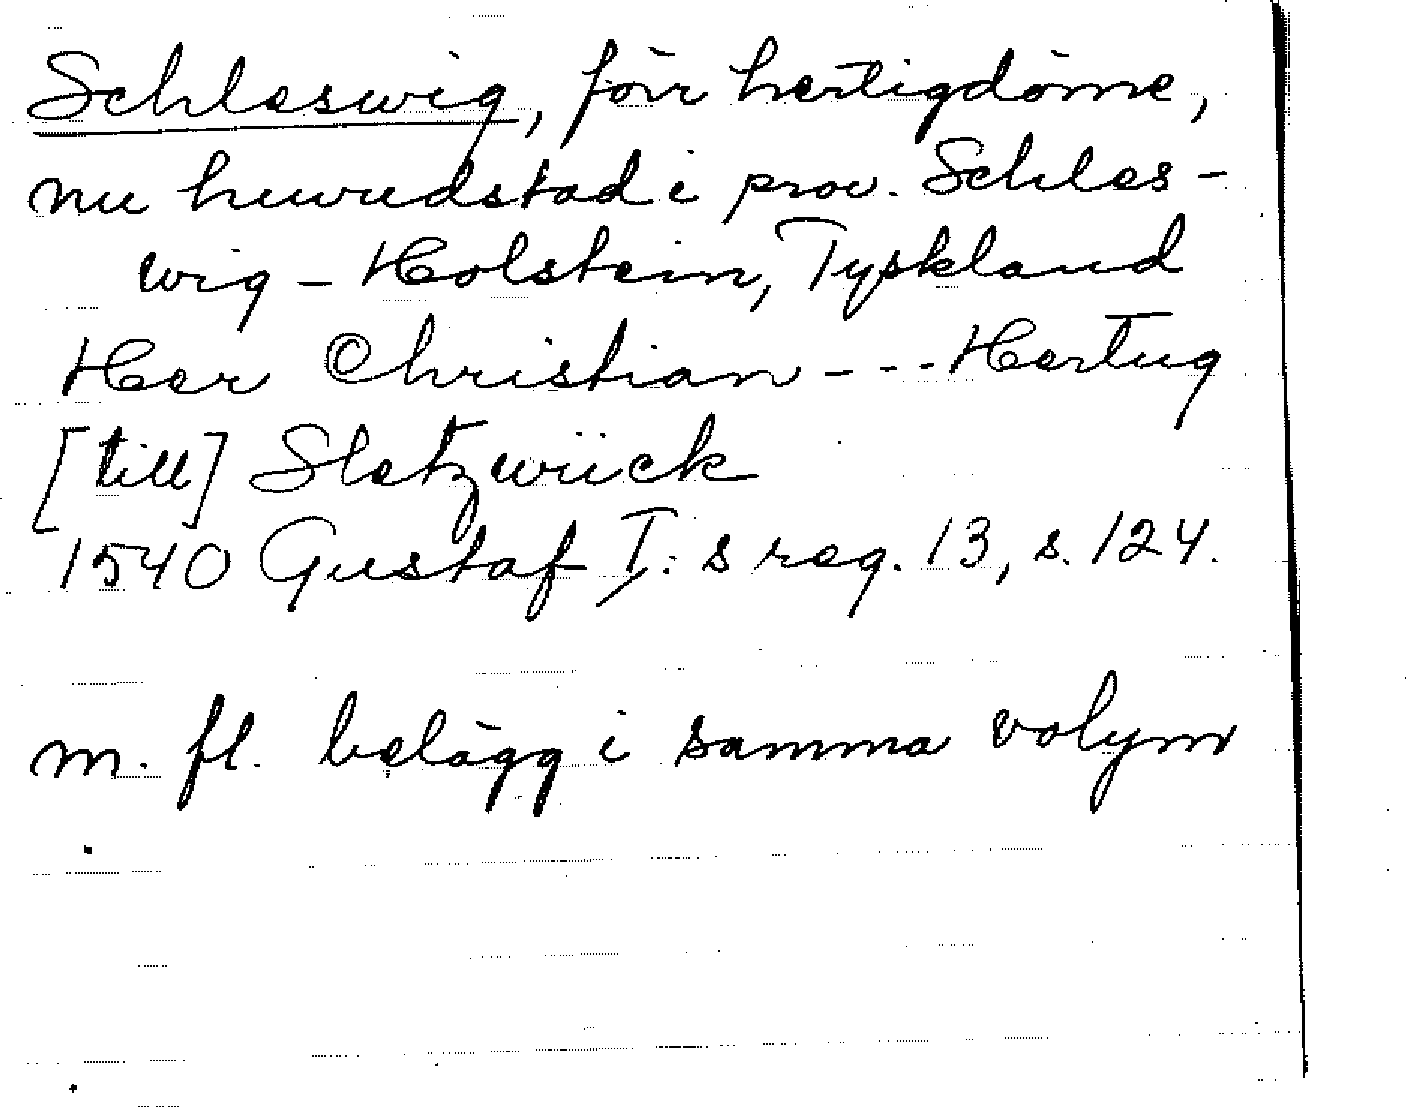 Schleswig, förr hertigdöme,
nu huvudstad i prov. Schles-
wig - Holstein, Tyskland
Her Christian - - - Hertug
[till] Sletzwiick
1540 Gustaf I: s reg. 13, s. 124.
m. fl. belägg i samma volym